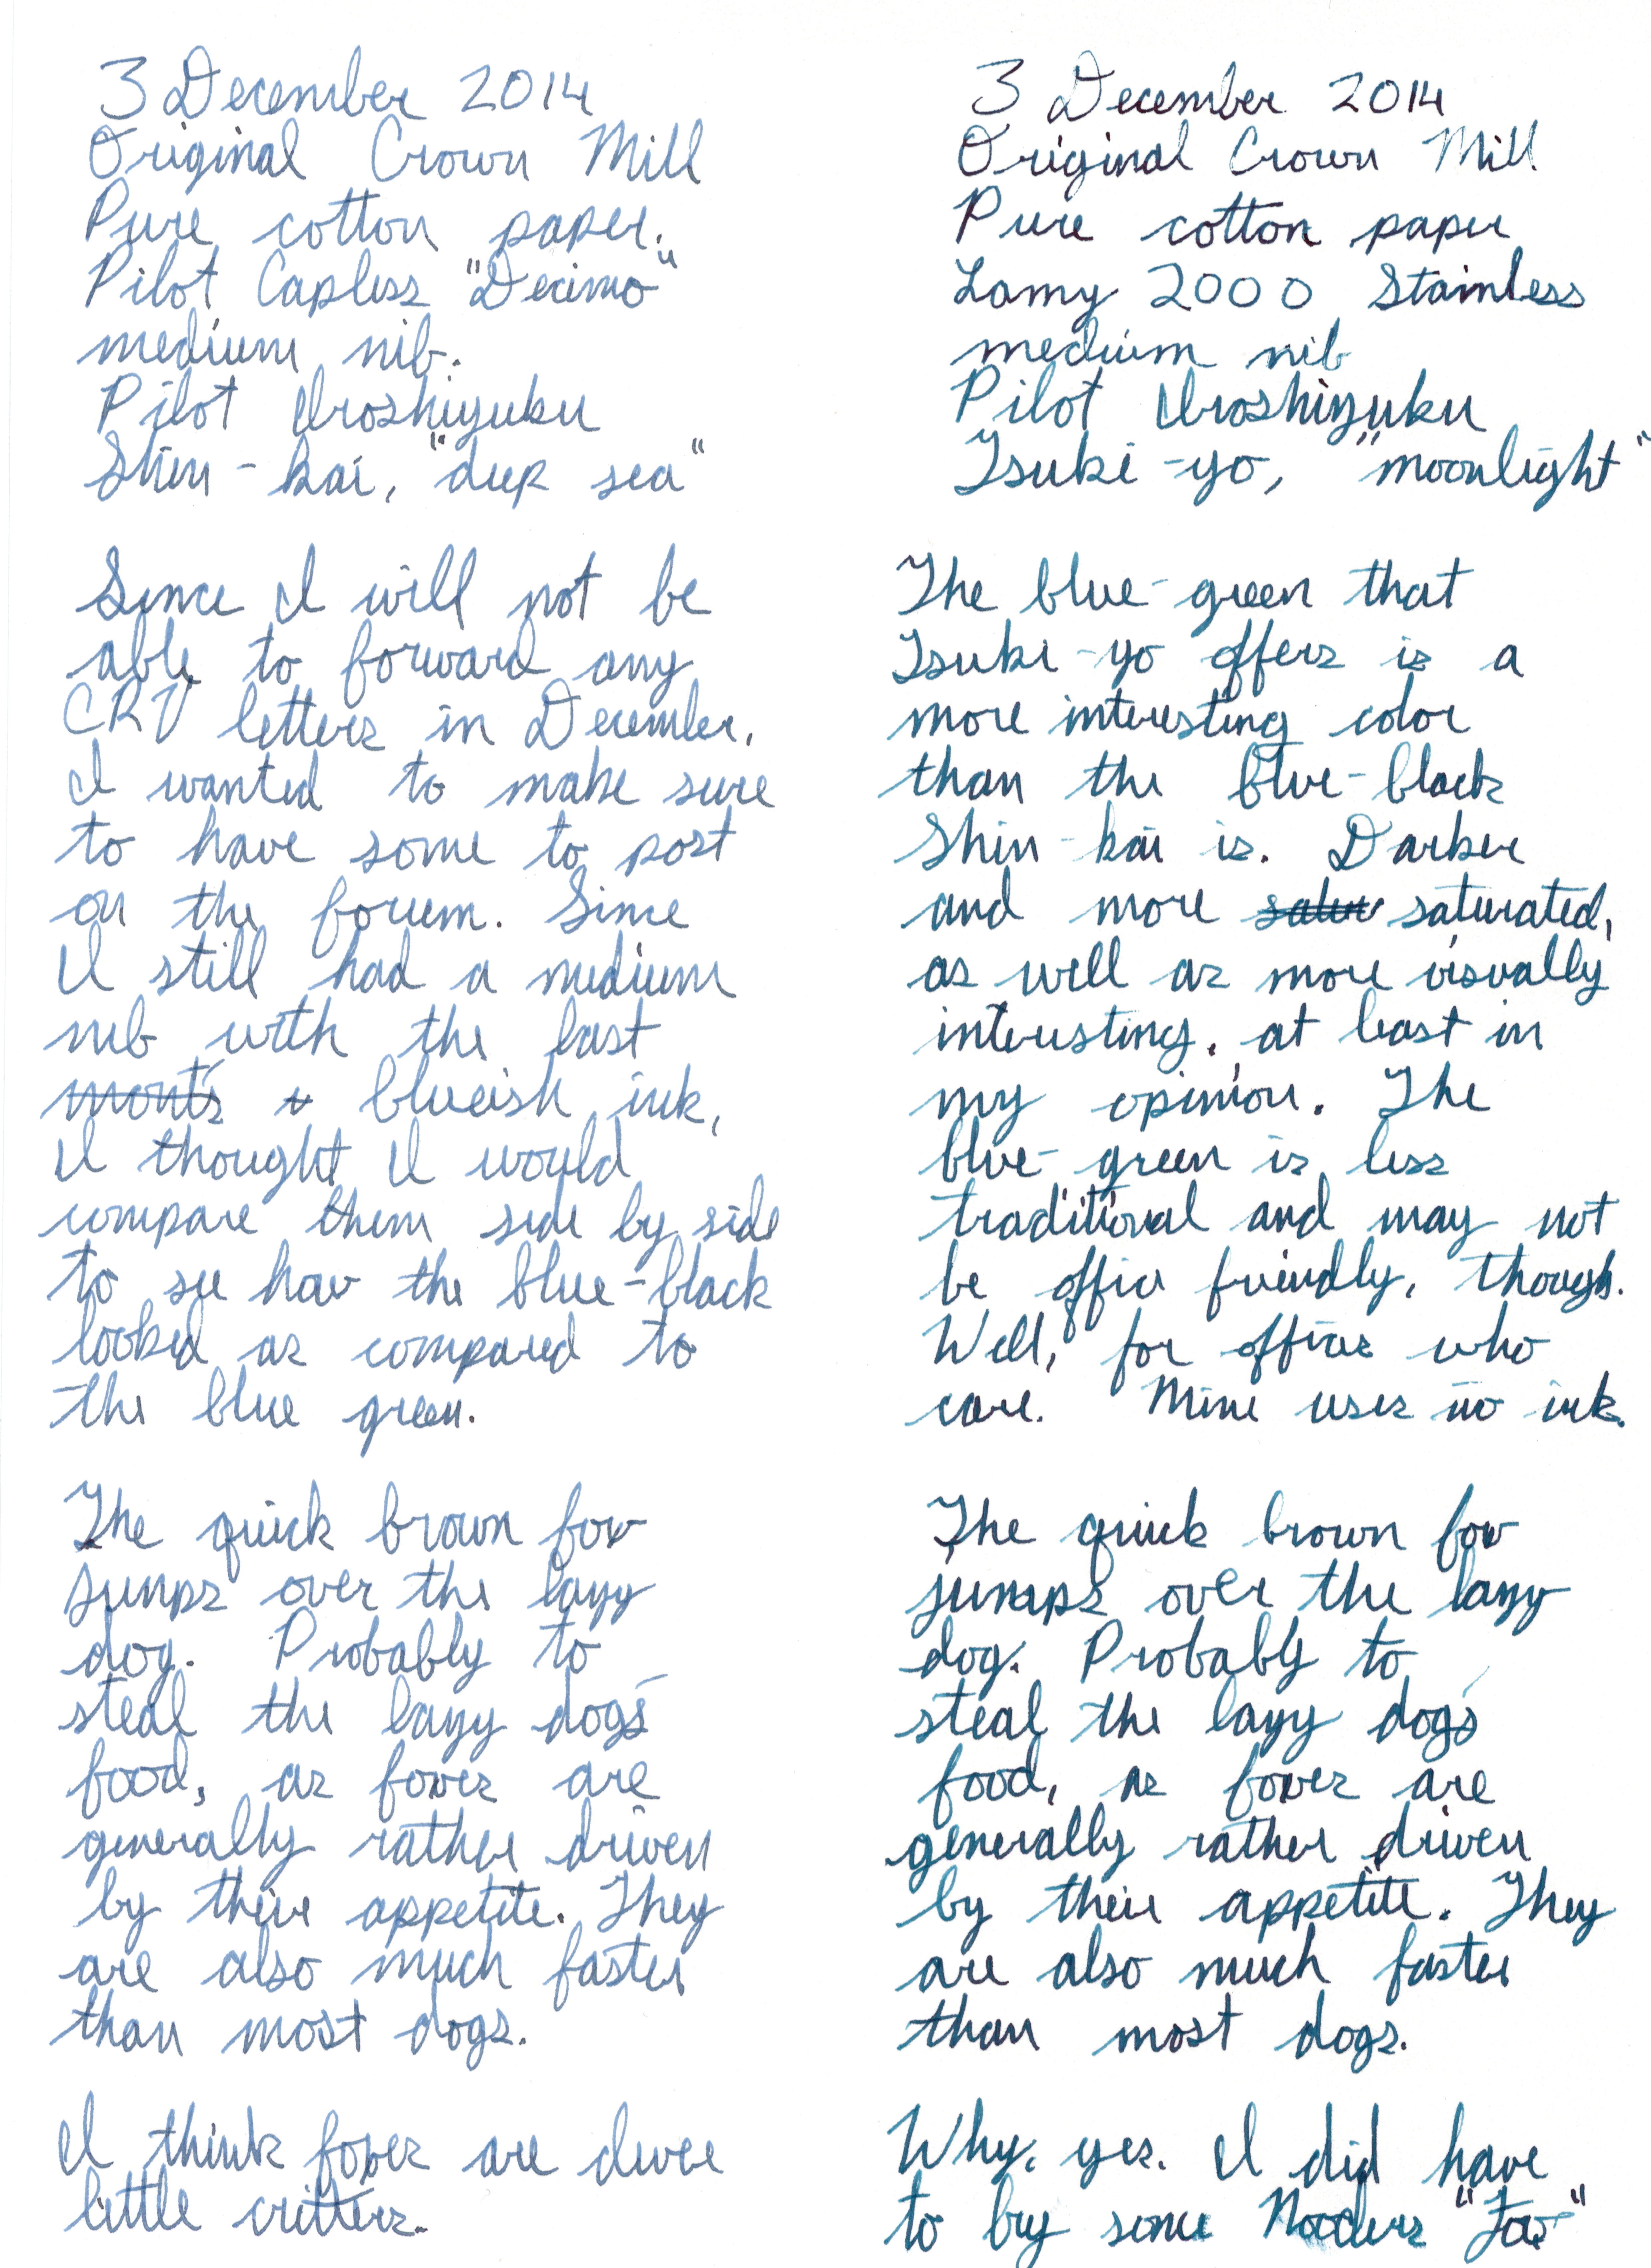 3 December 2014
Original Crown Mill
Pure cotton paper.
Pilot Capless "Decimo"
medium nib.
Pilot Iroshizuku
Shin-kai, "deep sea"
Since I will not be
able to forward any
CRV letters in December,
I wanted to make sure
to have some to post
on the forum. Since
I still had a medium
nib with the last
blueish ink,
I thought I would
compare them side by side
to see how the blue-black
looked as compared to
the blue green.
The quick brown fox
jumps over the lazy
dog. Probably to
steal the lazy dog's
food, as foxes are
generally rather driven
by their appetite. They
are also much faster
than most dogs.
I think foxes are
little critters.
3 December 2014
Original Crown Mill
Pure cotton paper
Lamy 2000 Stainless
medium nib
Pilot Iroshizuku
Tsuki-yo, "moonlight"
The blue-green that
Tsuki-yo offers is a
more interesting color
than the blue-black
Shin-kai is. Darker
and more saturated,
as well as more visually
interesting, at least in
my opinion. The
blue-green is less
traditional and may not
be office friendly, though.
Well, for offices who
care. Mine uses no ink.
The quick brown fox
jumps over the lazy
dog. Probably to
steal the lazy dog's
food, as foxes are
generally rather driven
by their appetite. They
are also much faster
than most dogs.
Why, yes. I did have
to buy some Nooders "Fox"